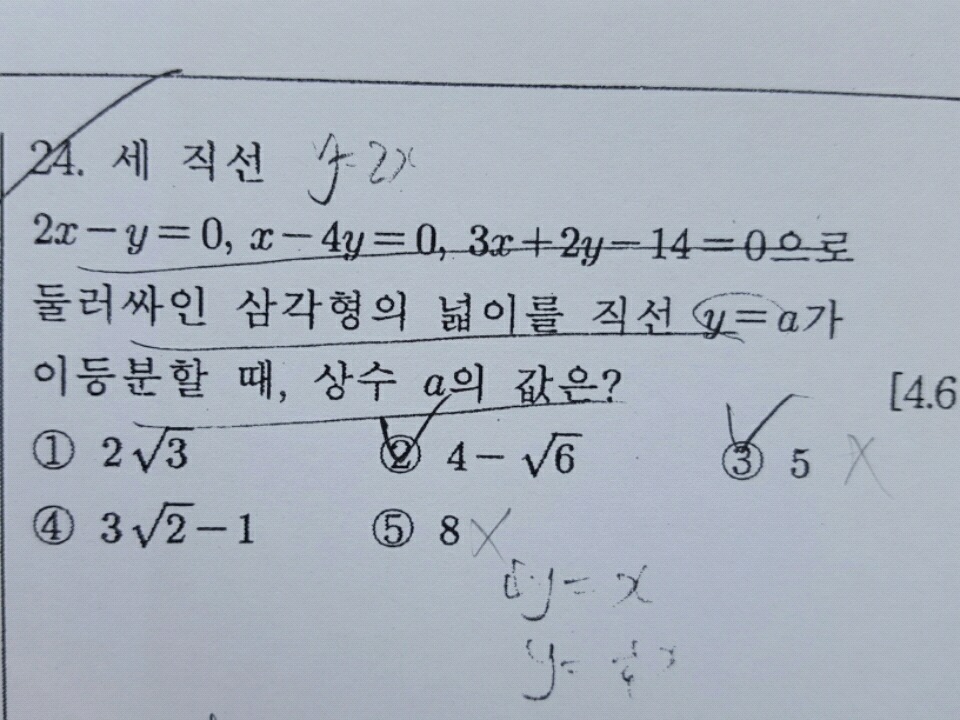 24. 세 직선 y=2x
2x-y=0, x-4y=0, 3x+2y-14=0으로
둘러싸인 삼각형의 넓이를 직선 y=a가
이등분할 때, 상수 a의 값은? [4.6
① 2√3 ② 4-√6 ③ 5
④ 3√2-1 ⑤ 8
y= x
y=